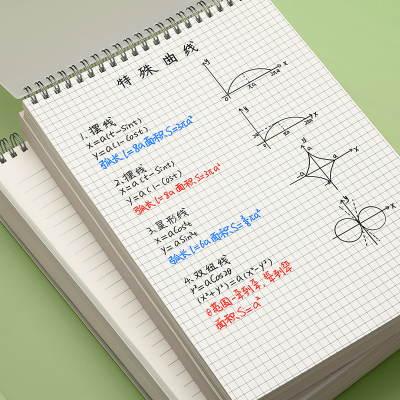 特殊曲线
1.摆线
x=a(t-sint)
y=a(1-cost)
弧长l=8a面积.S=3πa²
2.摆线
x=a(t-sint)
y=a(1-cost)
弧长l=8a面积.S=3πa²
3.星形线
x=acost
y=asint
弧长l=6a面积.S=⅜πa²
4.双纽线
r²=acos2θ
(x²+y²)=a(x²-y²)
面积.S=a²